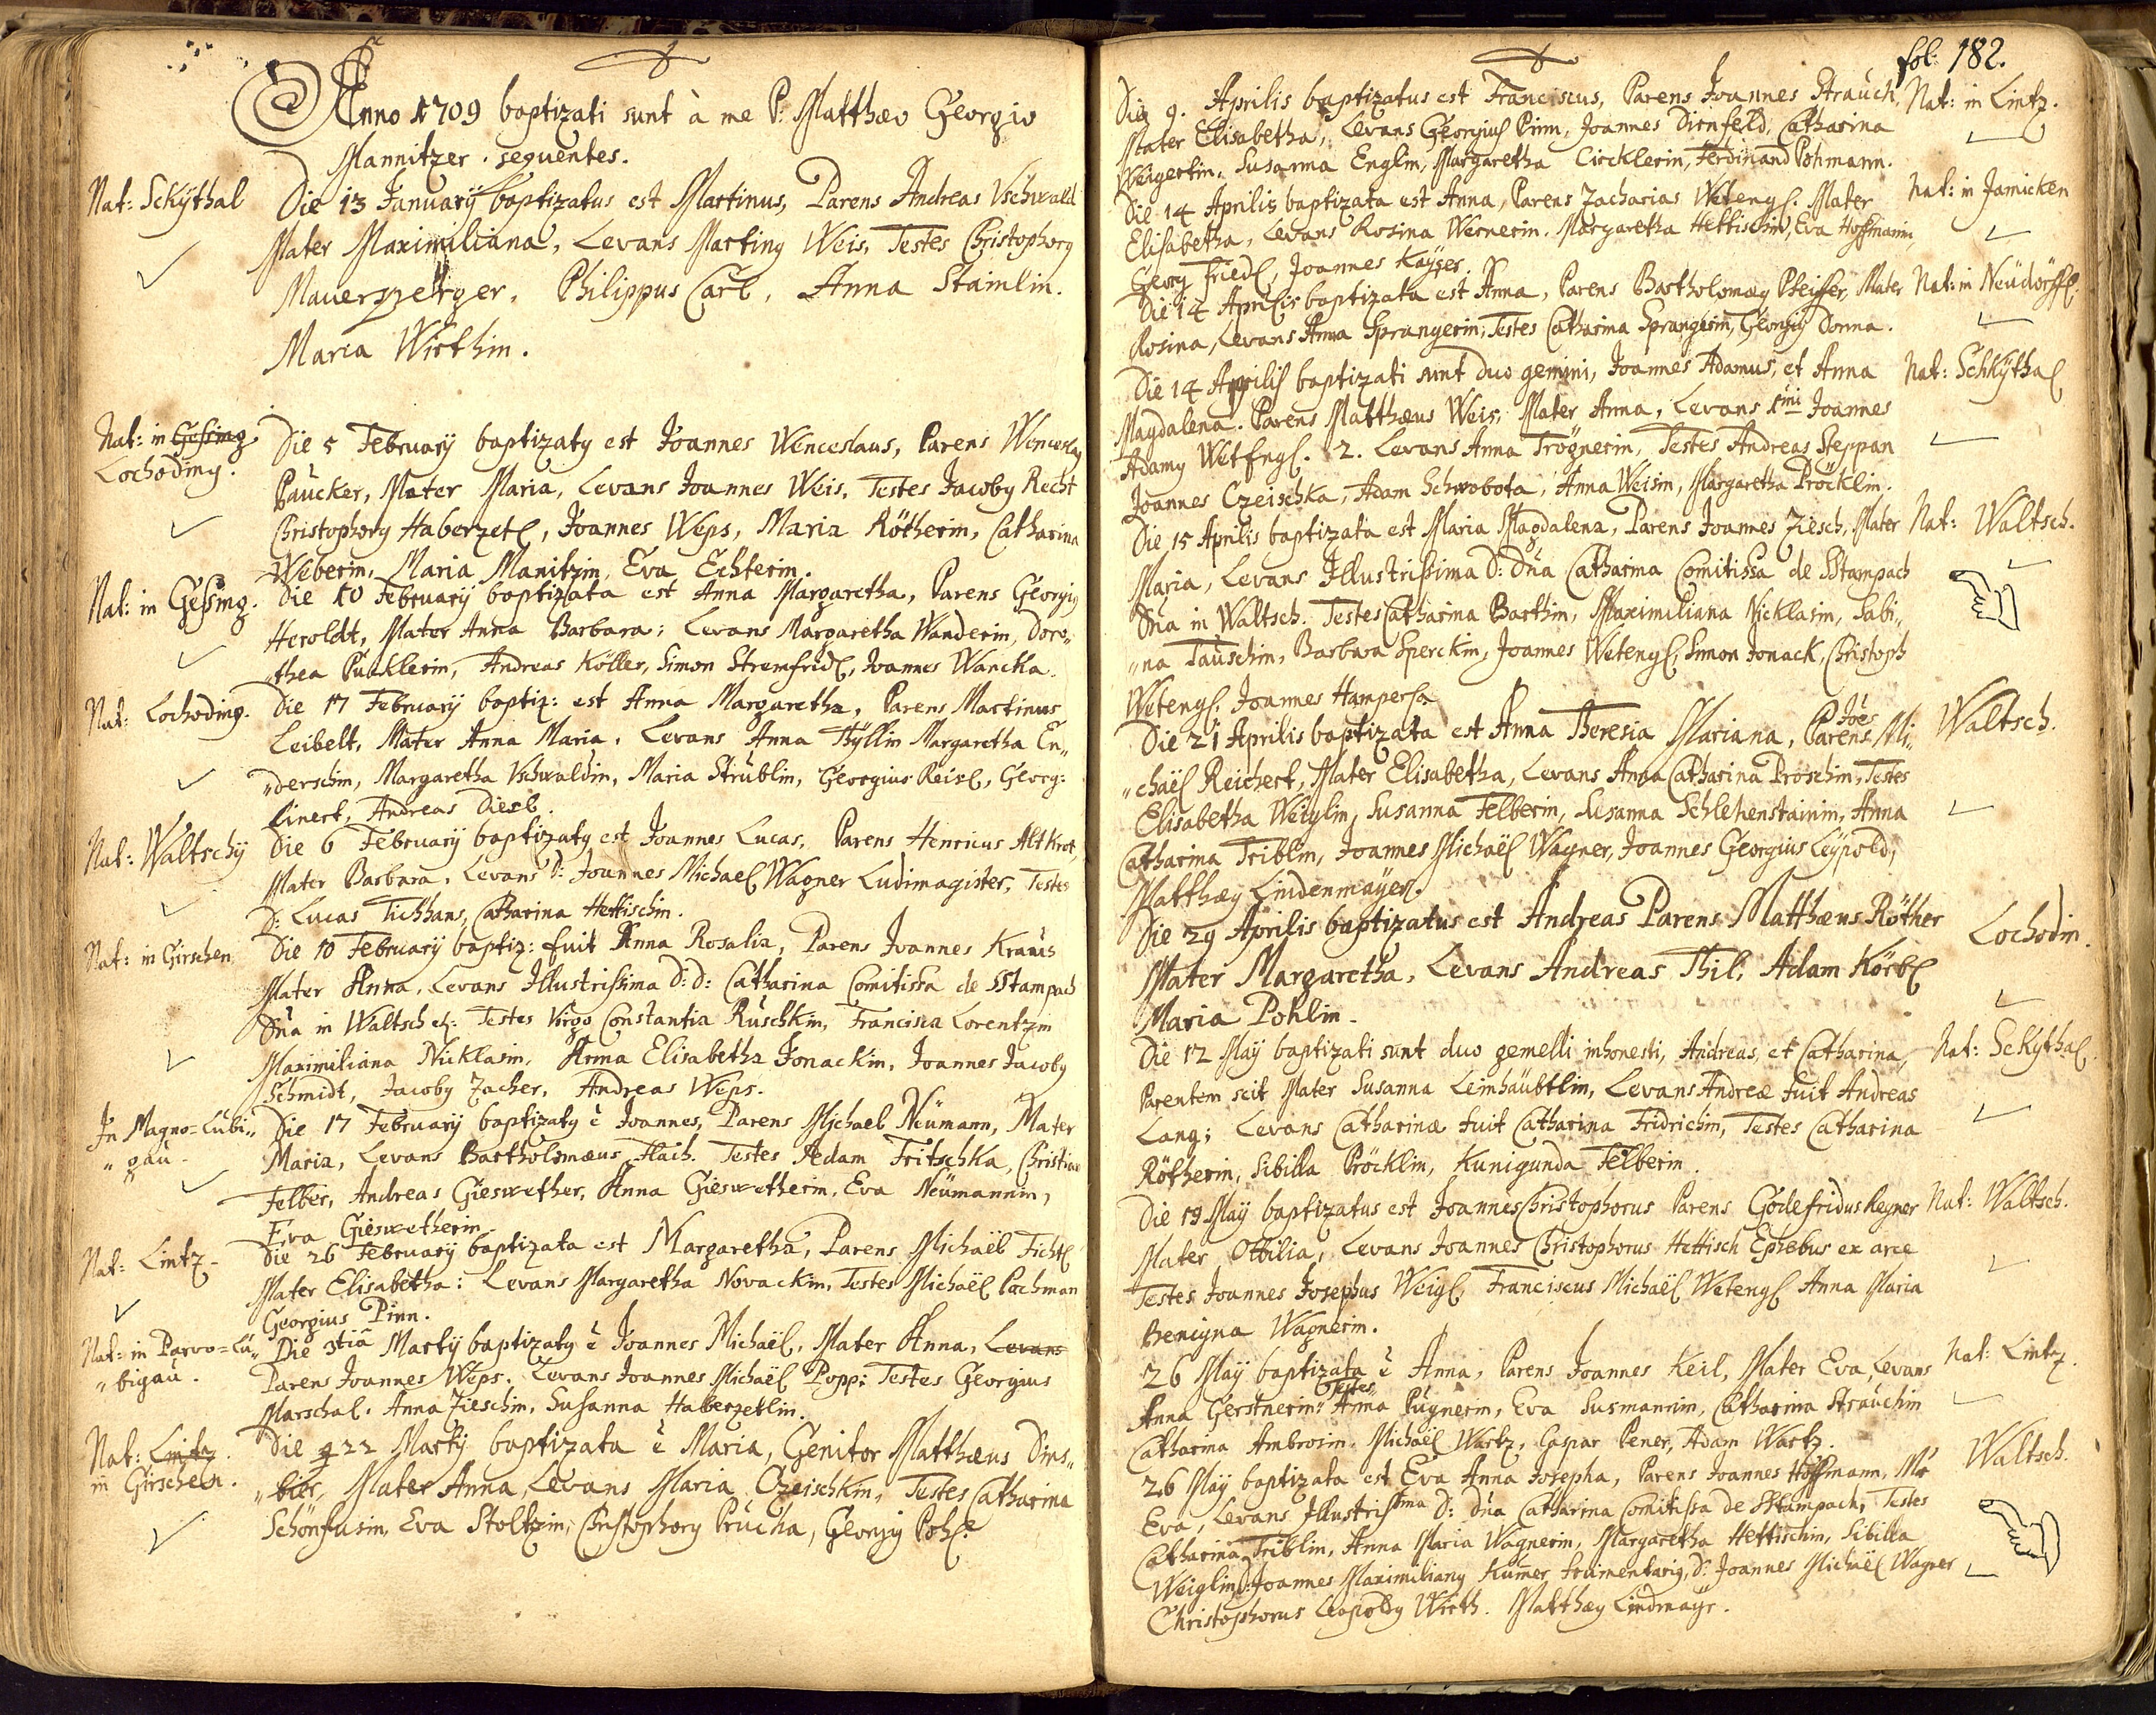 Anno 1709 baptizati sunt à me P: Matthæo Georgio
Mannitzer. sequentes.
Nat: Sckÿthal
Die 13 Januarÿ baptizatus est Martinus, Parens Andreas Vschwald
Mater Maximiliana, Levans Martinq Weis, Testes Christophorq
Mauersperger, Philippus Carl, Anna Stainlin.
Maria Wirthin.
Nat: in Gessing
Lochoding.
Die 5 Februarÿ baptizatq est Joannes Wenceslaus, Parens Wenceslaq
Paucker, Mater Maria, Levans Joannes Weis, Testes Jacobq Recht
Christophorq Haberzetl, Joannes Weps, Maria Rötherin, Catharina
Weberin, Maria Manitzin, Eva Echterin.
Nat: in Gessing.
Die 10 Februarÿ baptizata est Anna Margaretha, Parens Georgiq
Heroldt, Mater Anna Barbara; Levans Margaretha Wanderin, Doro„
„thea Punklerin, Andreas Köller, Simon Stremfridl, Joannes Wancka.
Nat: Lochoding.
Die 17 Februarÿ baptiz: est Anna Margaretha, Parens Martinus
Leibelt, Mater Anna Maria. Levans Anna Thÿllin Margaretha En„
„derschin, Margaretha Vschwaldin, Maria Strublin, Georgius Reisl, Georg:
Linert, Andreas Diesl.
Nat: Waltschÿ
Die 6 Februarÿ baptizatq est Joannes Lucas, Parens Henricus Altkrot,
Mater Barbara, Levans D: Joannes Michael Wagner Ludimagister, Testes
D: Lucas Tichhans, Catharina Hettischin.
Nat: in Girschen
Die 10 Februarÿ baptiz: fuit Anna Rosalia, Parens Joannes Kraus
Mater Anna, Levans Illustrissima D: D: Catharina Comitissa de Stampach
Dña in Waltsch etc: Testes Virgo Constantia Ruschkin, Francisca Lorentzin
Maximiliana Nicklasin, Anna Elisabetha Jonackin, Joannes Jacobq
Schmidt, Jacobq Zacher, Andreas Weps.
In Magno-Lubi„
„gau.
Die 17 Februarÿ baptizatq è Joannes, Parens Michael Neümann, Mater
Maria, Levans Bartholomæus Flach. Testes Adam Fritschka, Christian
Felber, Andreas Gieswether, Anna Gieswetherin, Eva Neümannin,
Eva Gieswetherin
Nat: Lintz.
Die 26 Februarÿ baptizata est Margaretha, Parens Michaël Fichtl
Mater Elisabetha: Levans Margaretha Novackin, Testes Michaël Pachman
Georgius Pinn.
Nat: in Parvo-Lu„
„bigau.
Die 3tiâ Martÿ baptizatq è Joannes Michaël, Mater Anna, Levans
Parens Joannes Weps. Levans Joannes Michaël Popp: Testes Georgius
Marschal. Anna Zieschin, Susanna Haberzetlin.
Nat: Lintz.
in Girschen.
Die 22 Martÿ baptizata è Maria, Genitor Matthæus Dins„
„bier, Mater Anna, Levans Maria Czeischkin, Testes Catharina
Schönfusin, Eva Stoltzin, Christophorq Prucha, Georgiq Pohl.
fol: 182.
Die 9. Aprilis baptizatus est Franciscus, Parens Joannes Strauch,
Nat: in Lintz.
Mater Elisabetha, Levans Georgius Pinn, Joannes Dirnfeld, Catharina
Weigertin, Susanna Englin, Margaretha Circklerin, Ferdinand Pohmann.
Die 14 Aprilis baptizata est Anna, Parens Zacharias Wetengl. Mater
Nat: in Jamicken
Elisabetha, Levans Rosina Wernerin. Margaretha Hettischin, Eva Hoffmanin,
Georg Friedl, Joannes Kaÿser.
Die 14 Aprilis baptizata est Anna, Parens Bartholomæq Pfeiffer, Mater
Nat: in Neüdörffl.
Rosina, Levans Anna Sprangerin, Testes Catharina Sprangerin, Georgiq Donna.
Die 14 Aprilis baptizati sunt duo gemini, Joannes Adamus, et Anna
Nat: Schkÿthal
Magdalena. Parens Matthæus Weis, Mater Anna, Levans 1mi Joannes
Adamq Wetengl. 2. Levans Anna Trögnerin, Testes Andreas Steppan
Joannes Czeischka, Adam Schwobota, Anna Weisin, Margaretha Pröcklin.
Die 15 Aprilis baptizata est Maria Magdalena, Parens Joannes Ziesch, Mater
Nat: Waltsch.
Maria, Levans Illustrissima D: Dña Catharina Comitissa de Stampach
Dña in Waltsch. Testes Catharina Barthin, Maximiliana Nicklasin, Sabi„
„na Tauschin, Barbara Sperckin, Joannes Wetengl, Simon Jonack, Christoph
Wetengl. Joannes Hampersa
Die 21 Aprilis baptizata est Anna Theresia Mariana, Parens Joes Mi„
Waltsch.
„chaël Reichert, Mater Elisabetha, Levans Anna Catharina Proschin, Testes
Elisabetha Weiglin, Susanna Felberin, Susanna Schlehenstainin, Anna
Catharina Triblin, Joannes Michaël Wagner, Joannes Georgius Leÿpold,
Matthæq Lindenmaÿer.
Die 29 Aprilis baptizatus est Andreas Parens Matthæus Röther
Lochodin.
Mater Margaretha, Levans Andreas Thil, Adam Körbl
Maria Pohlin.
Die 12 Maÿ baptizati sunt duo gemelli inhonesti, Andreas, et Catharina,
Nat: Sckÿthal.
Parentem scit Mater Susanna Leinhäubtlin, Levans Andreæ fuit Andreas
Lang; Levans Catharinæ fuit Catharina Fridrichin, Testes Catharina
Rötherin, Sibilla Pröcklin, Kunigunda Felberin.
Die 19 Maÿ baptizatus est Joannes Christophorus Parens Godefridus Regner
Nat: Waltsch.
Mater Otbilia, Levans Joannes Christophorus Hettisch Ephebus ex arce
Testes Joannes Josephus Weigl, Franciscus Michaël Wetengl Anna Maria
Benigna Wagnerin.
26 Maÿ baptizata è Anna, Parens Joannes Keil, Mater Eva, Levans
Nat: Lintz.
Anna Gerstnerin, Testes Anna Pugnerin, Eva Susmannin, Catharina Strauchin
Catharina Ambrosin. Michaël Wartz, Caspar Pener, Adam Wartz.
26 Maÿ baptizata est Eva Anna Josepha, Parens Joannes Hoffmann, Mr
Waltsch.
Eva, Levans Illustrissma D: Dña Catharina Comitissa de Stampach, Testes
Catharina Triblin, Anna Maria Wagnerin, Margaretha Hettischin, Sibilla
Weiglin, D: Joannes Maximilianq Kumer frumentariq, D: Joannes Michaël Wagner
Christophorus Leopoldq Wirth. Matthæq Lindmayr.